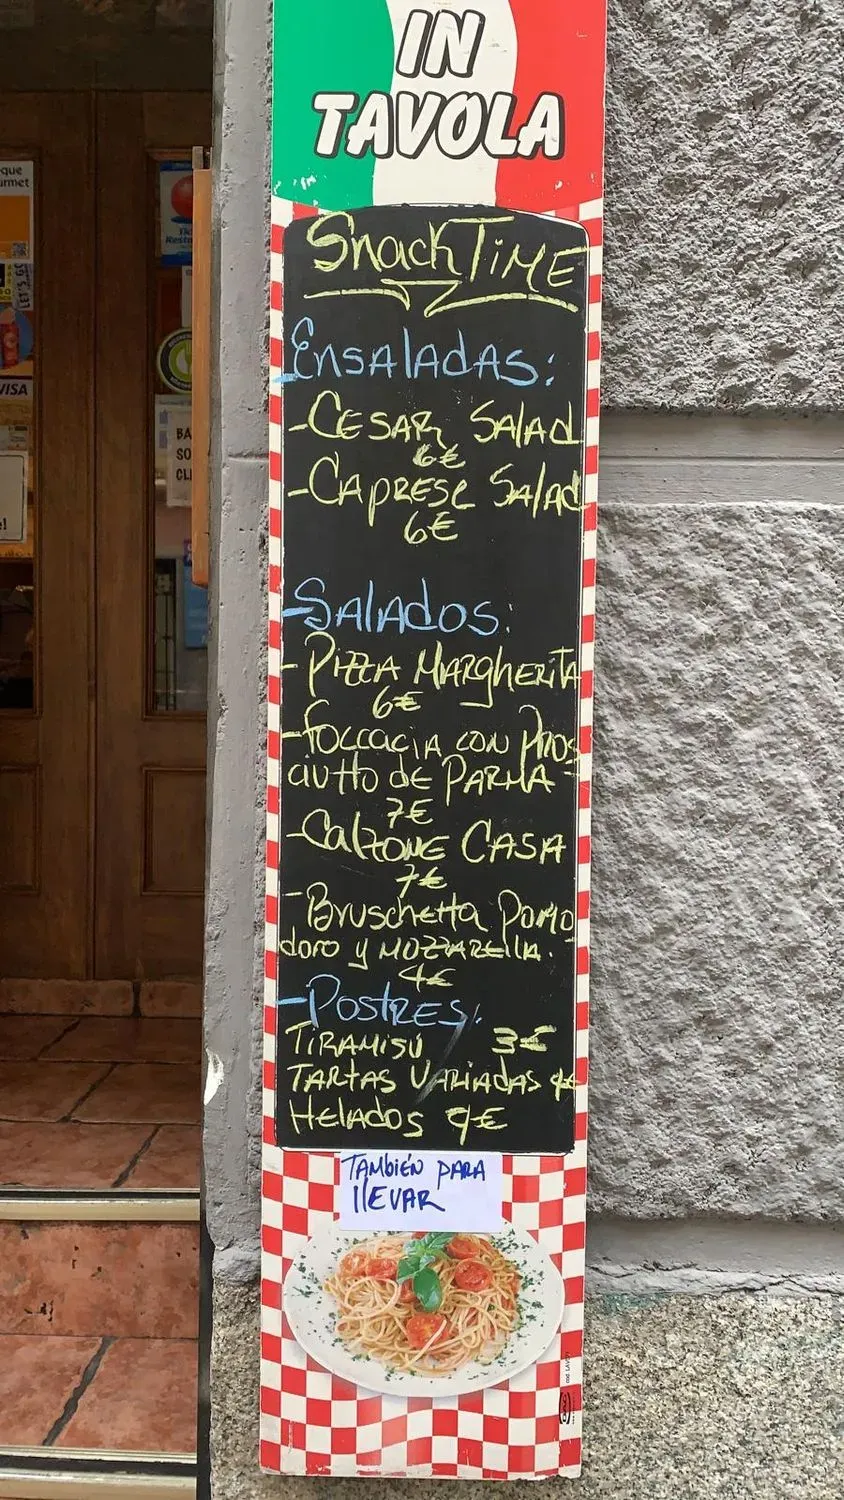 IN
TAVOLA
Snack TIME
ENSALADAS:
-CESAR SALAD
6€
-CAPRESE SALAD
6€
-SALADOS:
-PIZZA MARGHERITA
6€
-FOCCACIA CON PROS
CIUTTO de PARMA
7€
-CALZONE CASA
7€
-Bruschetta POMO
doro y MOZZARElla.
4€
-POSTRES:
TIRAMISÚ 3€
TARTAS VARIADAS 4€
HELADOS 4€
TAMBIÉN PARA
llEVAR
VISA
LET'S GO
BA
SO
CL